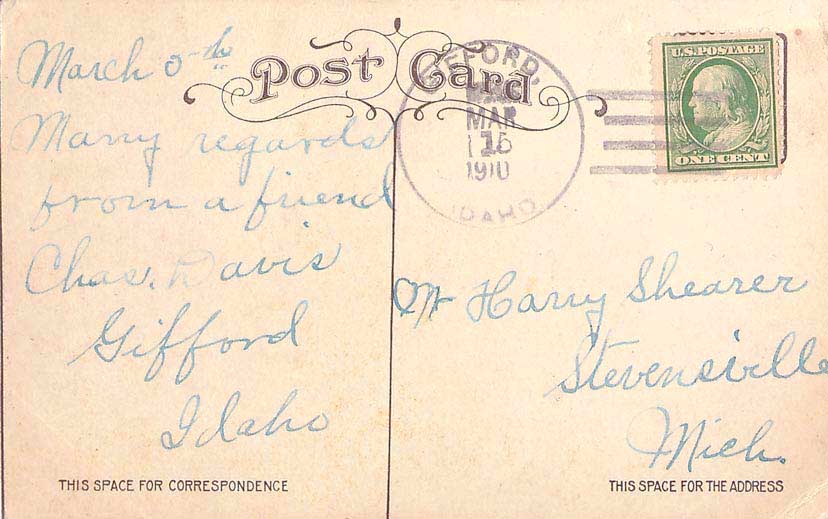 Post Card
March 5th
Many regards
from a friend
Chas. Davis
Gifford
Idaho
THIS SPACE FOR CORRESPONDENCE
GIFFORD,
MAR
15
1910
IDAHO
U.S. POSTAGE
ONE CENT
Mr Harry Shearer
Stevensville
Mich.
THIS SPACE FOR THE ADDRESS